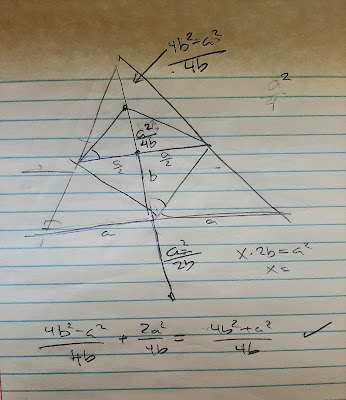 4b²-a²/4b
a²/4
a²/4b
a/2 a/2
b
a a
a²/2b
x·2b=a²
x=
4b²-a²/4b + 2a²/4b = 4b²+a²/4b ✓